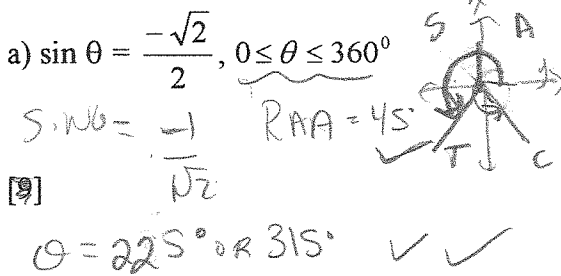 a) sin θ = -√2/2, 0 ≤ θ ≤ 360⁰
S A
T C
Sinθ = -1/√2 RAA = 45° ✓
[9]
θ = 225° OR 315° ✓ ✓